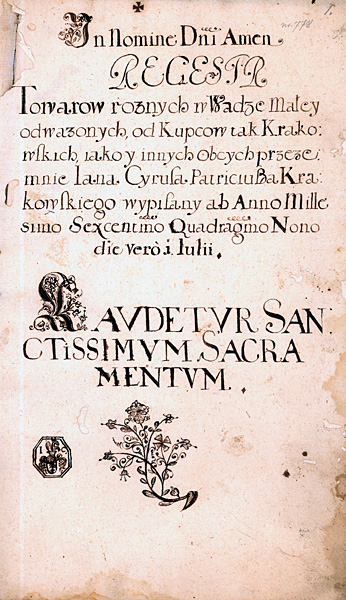 In Nomine Dni Amen
REGESTR
Towarow roznych w Wadze Małey
odwazonych, od Kupcow tak Krako:
wskich, iako y innych Obcych przeze:
mnie Iana Cyrusa Patriciußa Kra:
kowskiego wypisany ab Anno Mille
simo Sexcentimo Quadragmo Nono
die verò 1. Iulii.
LAVDETVR SAN
CTISSIMVM SACRA
MENTVM.